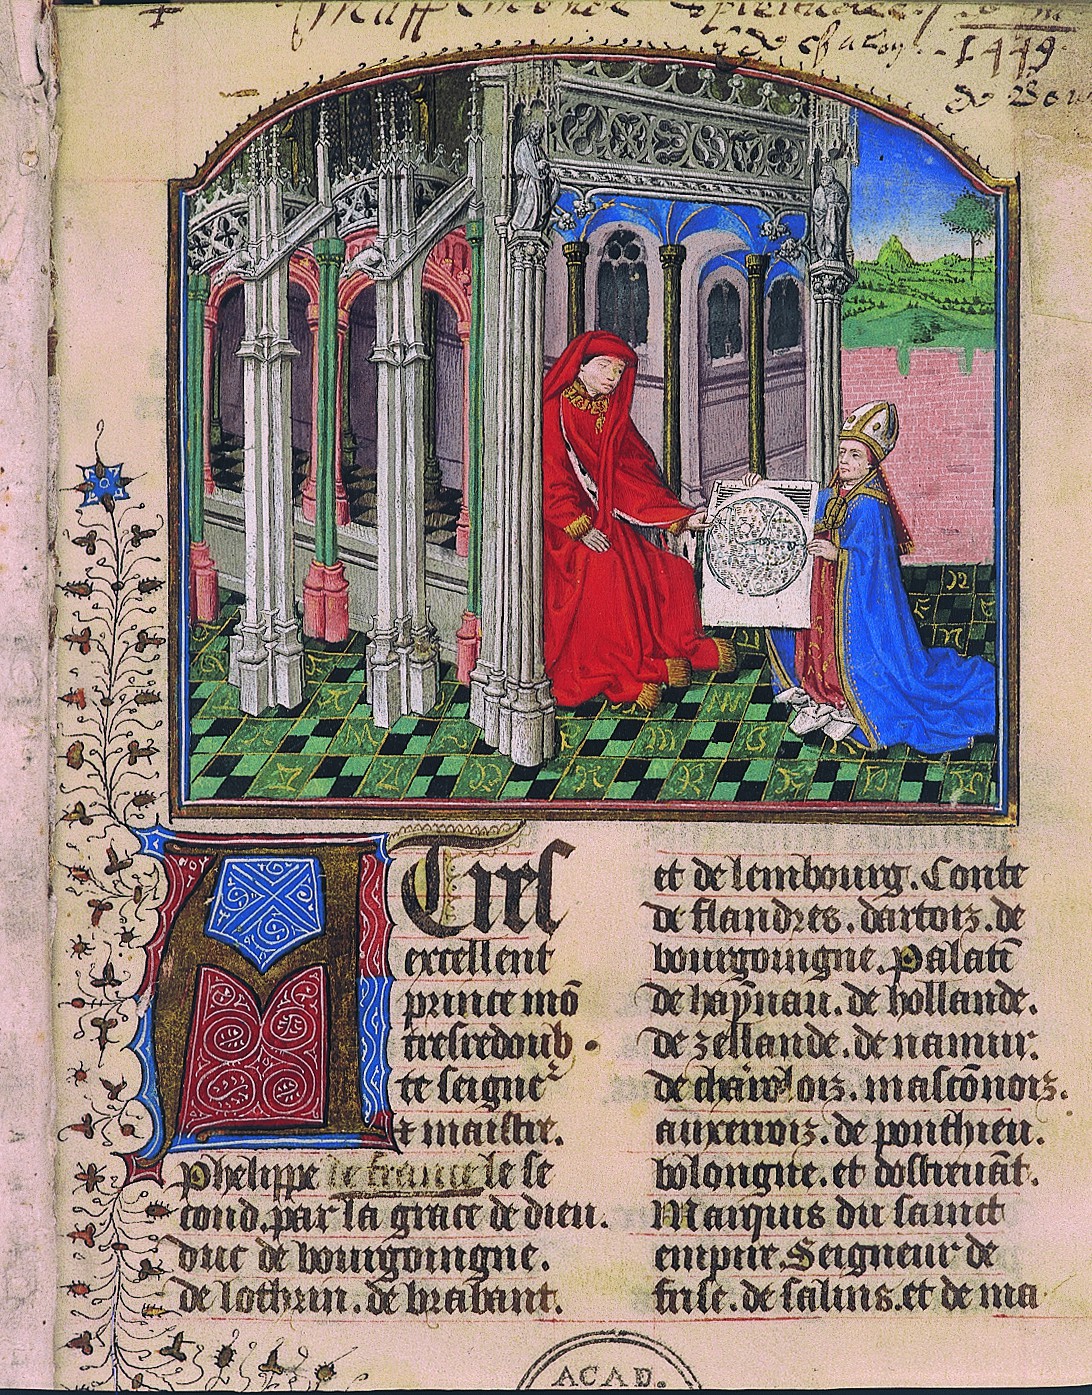 1449
A Tres
excellent
prince mō
tresredoub
te seigne^r
⁊ maistre.
Phelippe le se
cond. par la grace de dieu.
duc de bourgoingne.
de lothrin. de brabant.
et de lembourg. Conte
de flandres. dartoiz. de
bourgoingne. Palatī
de haynau. de hollande.
de zellande. de namur.
de charoloiz. mascōnoiz.
auxerroiz. de ponthieu.
bolongne. et dostreuāt.
Marquis du sainct
empire. Seigneur de
frise. de salins. et de ma
ACAD.